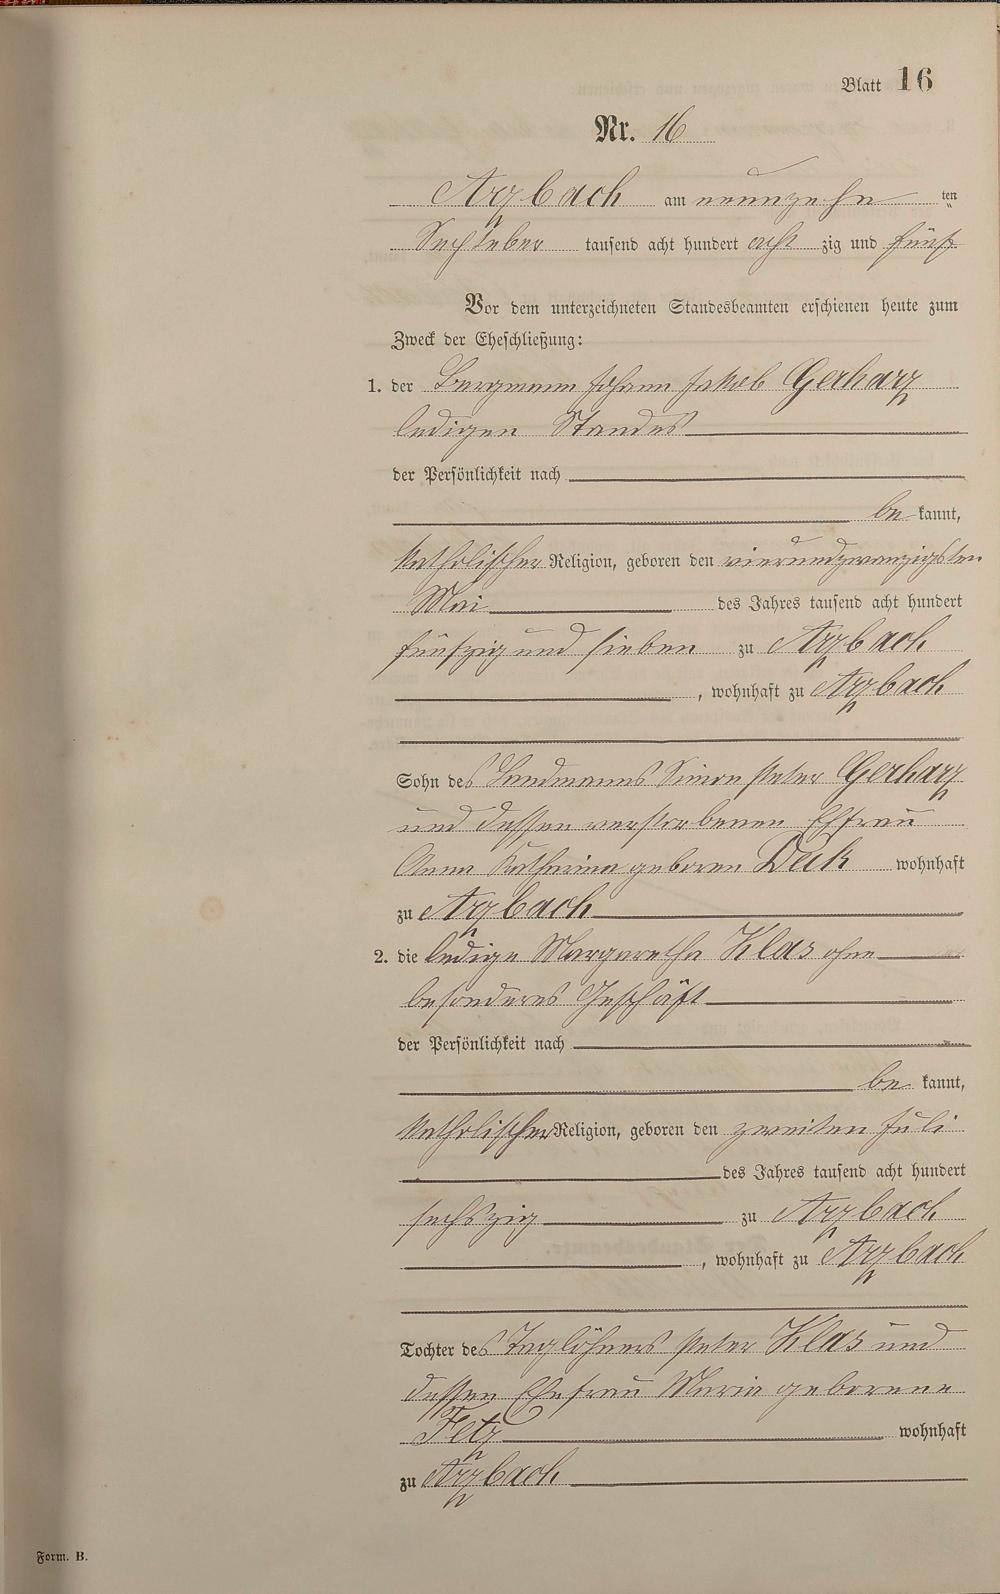 Blatt 16
Nr. 16
Arzbach am neunzehn ten
tausend acht hundert acht zig und fünf
Vor dem unterzeichneten Standesbeamten erschienen heute zum
Zweck der Eheschließung:
1. der Bergmann Johann Jakob Gerharz
ledigen Standes
der Persönlichkeit nach
be kannt,
katholischer Religion, geboren den vierundzwanzigsten
Mai des Jahres tausend acht hundert
fünfzig und sieben zu Arzbach
, wohnhaft zu Arzbach
Sohn des Landmanns Simon Peter Gerharz
und dessen verstorbenen Ehfrau
Anna Katharina geboren Deck wohnhaft
zu Arzbach
2. die ledige Margaretha Klas ohne
besonderes Geschäft
der Persönlichkeit nach
be kannt,
katholischer Religion, geboren den zweiten Juli
des Jahres tausend acht hundert
sechszig zu Arzbach
, wohnhaft zu Arzbach
Tochter des Taglöhners Peter Klas und
dessen Ehefrau Maria geborene
Fetz wohnhaft
zu Arzbach
Form. B.